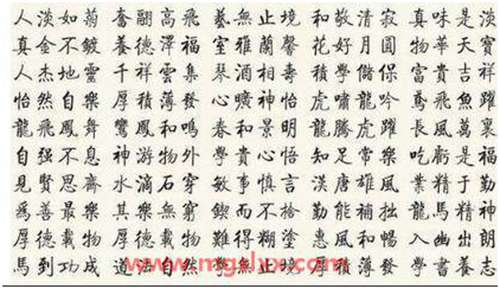 人淡如菊 奮翮高飛 藝無止境 和敬清寂 真味是淡
真金不鍍 養德澤福 室雅蘭馨 花好月圓 物華天寶
人杰地靈 千祥雲集 琴酒相壽 積學儲保 富貴吉祥
怡然自樂 厚積薄發 心曠神怡 虎嘯龍吟 鳶飛魚躍
龍飛鳳舞 鸞鳳和鳴 春和景明 龍騰虎躍 長風萬裏
自强不息 神游物外 貴心悟 知足常樂 吃虧是福
見賢思齋 水滴石穿 敏事慎言 漢唐雄風 業精于勤
為善最樂 其樂無窮 鍥而不捨 勤能補拙 龍馬精神
厚德載物 厚德載物 難得糊塗 惠風和暢 入幽出朗
馬到功成 道法自然 學無止境 厚積薄發 學書養志